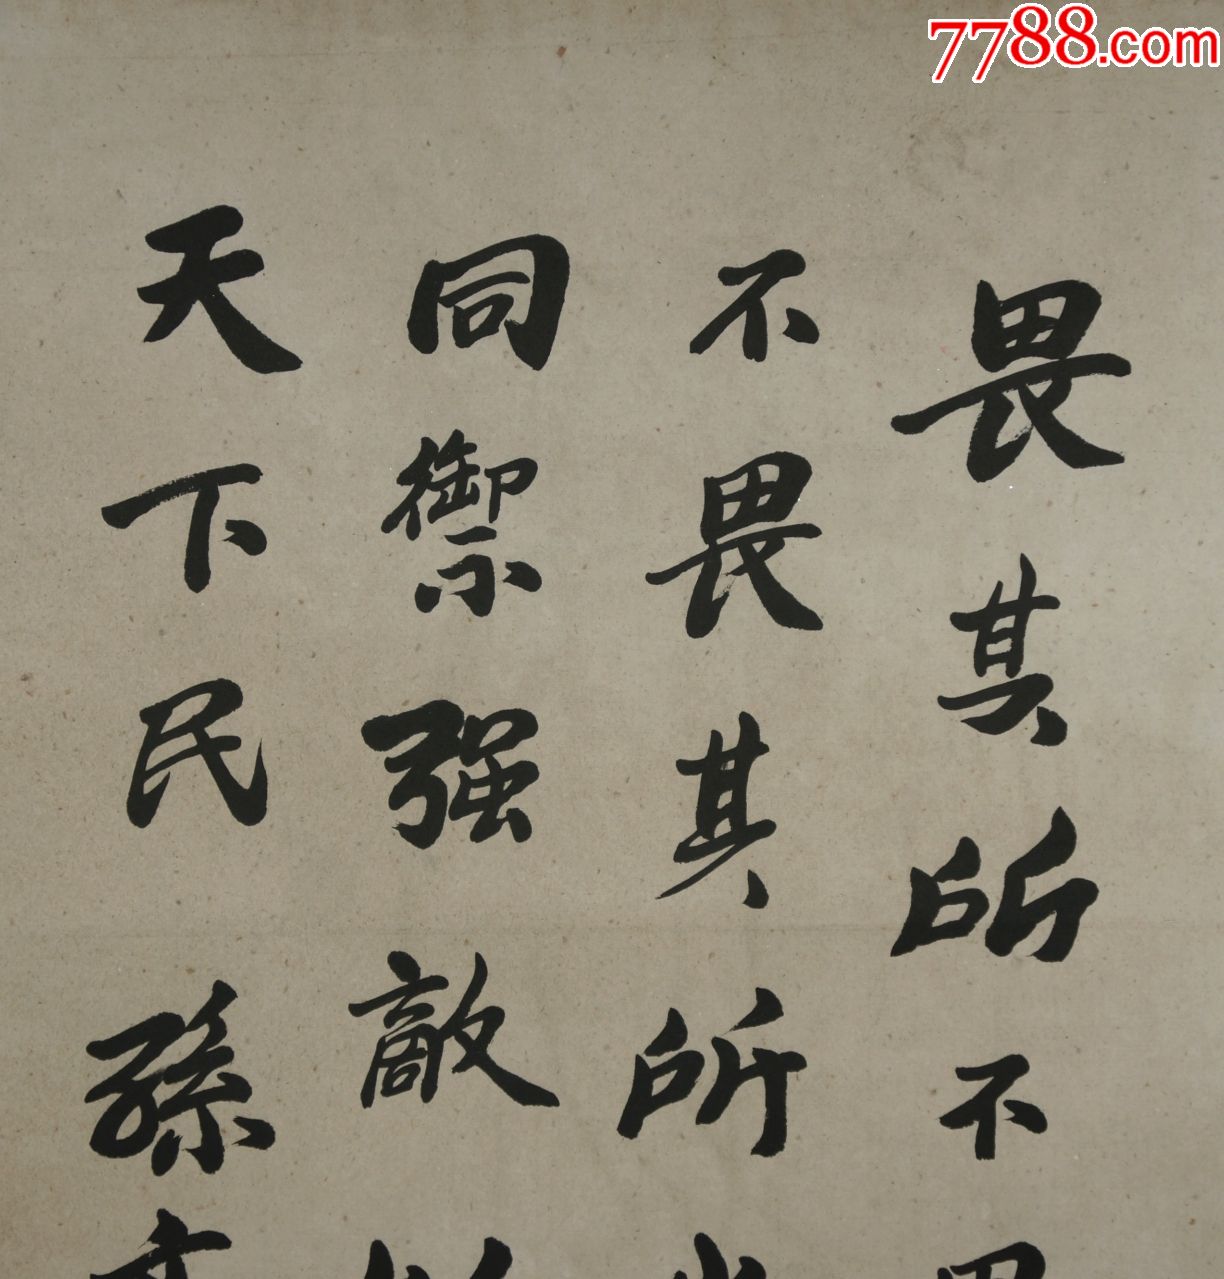 7788.com
畏其所不
不畏其所
同禦强敵
天下民孫